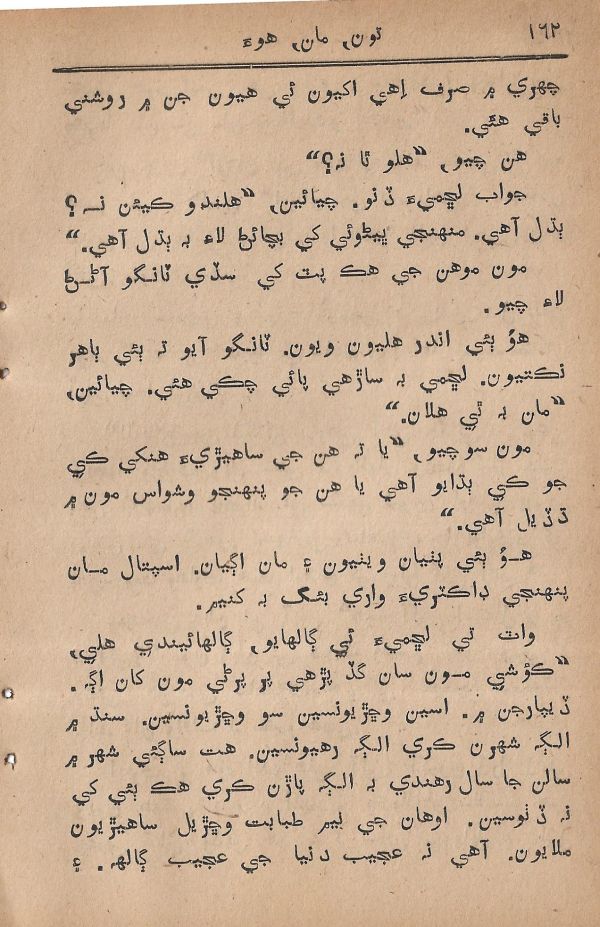 ۱۶۲
تون, مان, هوءَ
چهري ۾ صرف اِهي اکيون ئي هيون جن ۾ روشني
باقي هئي.
هن چيو, “هلو ٿا نہ؟“
جواب لڇميءَ ڏنو. چيائين, “هلندو ڪيئن نہ؟
ٻڌل آهي. منهنجي ڀيڻوئي کي بچائڻ لاءِ بہ ٻڌل آهي.“
مون موهن جي هڪ پٽ کي سڏي ٽانگو آڻڻ
لاءِ چيو.
هوُ ٻئي اندر هليون ويون. ٽانگو آيو تہ ٻئي ٻاهر
نڪتيون. لڇمي بہ ساڙهي پائي چڪي هئي. چيائين,
“مان بہ ٿي هلان.“
مون سوچيو, “يا تہ هن جي ساهيڙيءَ هنکي ڪي
جو ڪي ٻڌايو آهي يا هن جو پنهنجو وشواس مون ۾
ڌڏيل آهي.“
هوُ ٻئي پٺيان ويٺيون ۽ مان اڳيان. اسپتال مان
پنهنجي ڊاڪٽريءَ واري بئگ بہ کنيم.
واٽ تي لڇميءَ ئي ڳالهايو, ڳالهائيندي هلي,
“ڪوُشي مون سان گڏ پڙهي پر پرڻي مون کان اڳہ.
ڏيپارجن ۾. اسين وڇڙيونسين سو وڇڙيونسين. سنڌ ۾
الڳہ شهرن ڪري الڳہ رهيونسين. هت ساڳئي شهر ۾
سالن جا سال رهندي بہ الڳہ پاڙن ڪري هڪ ٻئي کي
نہ ڏٺوسين. اوهان جي بيم طبابت وڇڙيل ساهيڙيون
ملايون. آهي نہ عجيب دنيا جي عجيب ڳالهہ. ۽